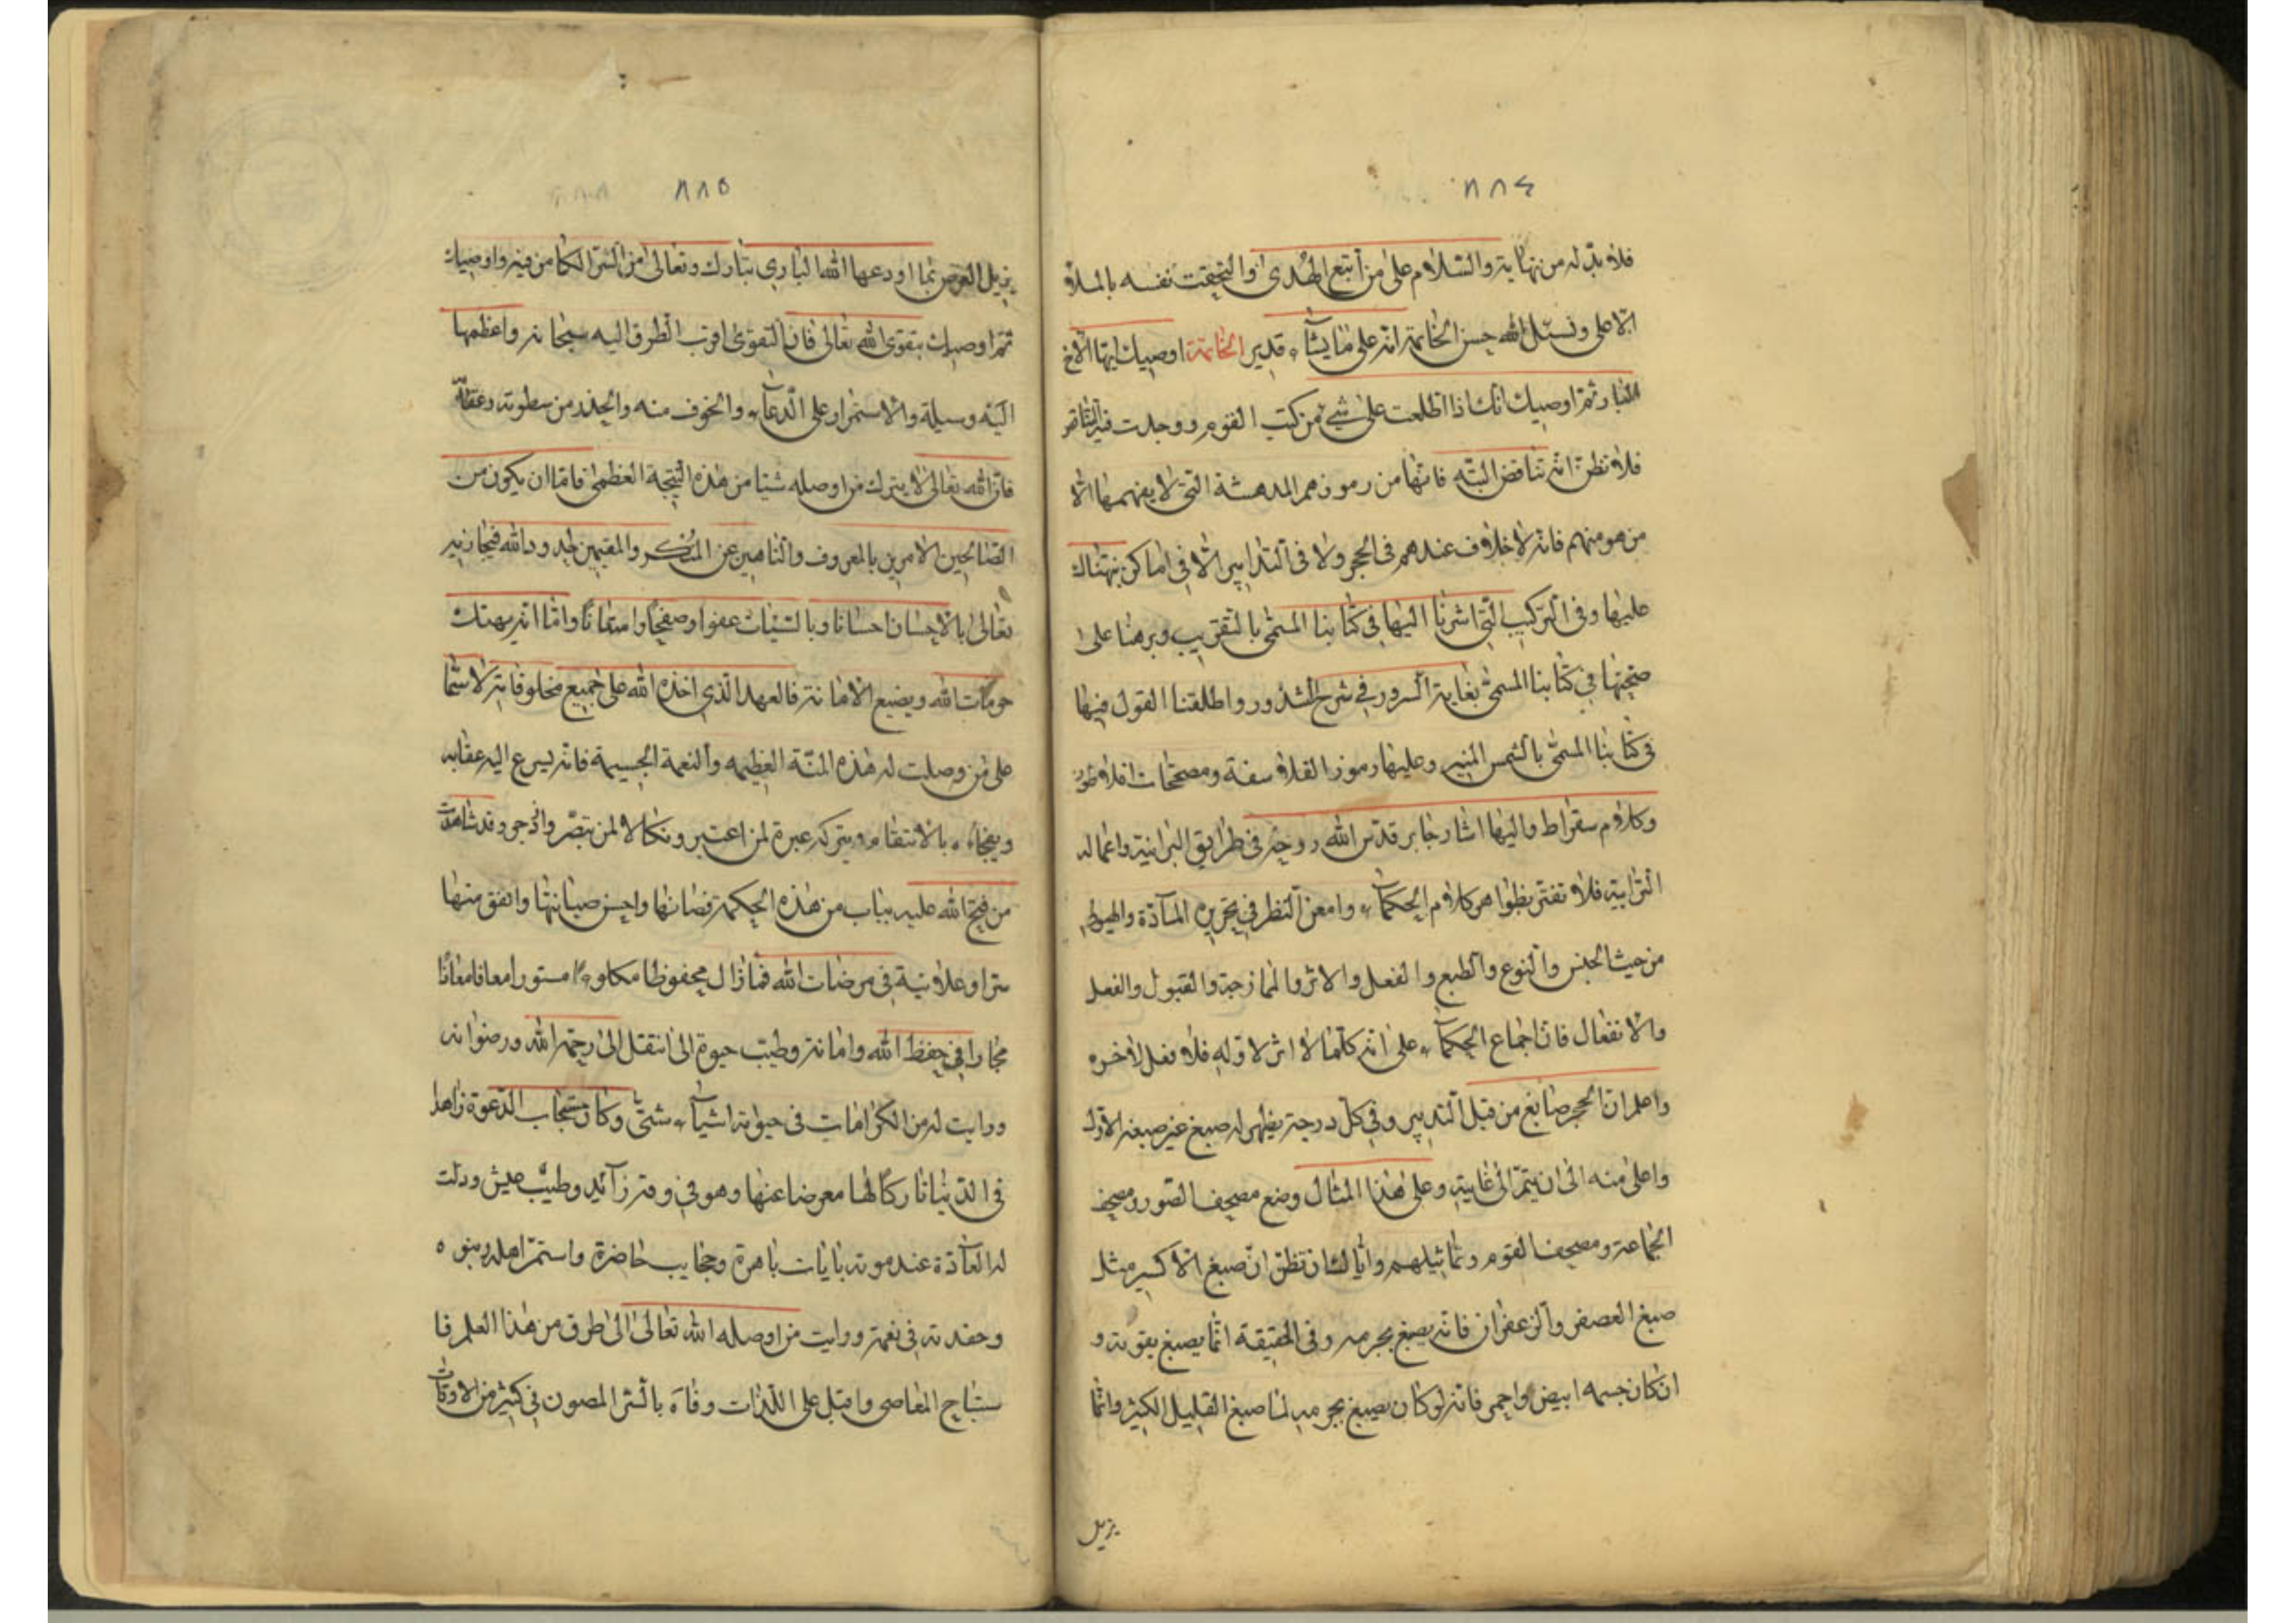 ٨٨٤
فلا بدّ له من نهاية والسّلام على من اتبع الهدى والتحقت نفسه بالملاء
الاعلى ونسئل الله حسن الخاتمة انه على ما يشآء قدير الخاتمة اوصيك ايها الاخ
البار ثمّ اوصيك انك اذا اطلعت على شيء من كتب القوم ووجدت فيه التناقض
فلا تظن انه تناقض البتّه فانها من رموزهم المدهشة التى لا يفهمها الّا
من هو منهم فانه لا خلاف عندهم فى الحجر ولا فى التدابير الّا فى اماكن نبهناك
عليها وفى التركيب الّتى اشرنا اليها فى كتابنا المسمّى بالتقريب وبرهنا على
صحتها فى كتابنا المسمّى بغاية السرور فى شرح الشذور واطلقنا القول فيها
فى كتابنا المسمّى بالشمس المنير وعليها رموز الفلاسفة ومصححات افلاطون
وكلام سقراط واليها اشار جابر قدّس الله روحه فى طرايق البرانية واعماله
الترابية فلا تغتر بظواهر كلام الحكمآء وامعن النظر فى تحرير المآدّة والهيولى
من حيث الجنس والنوع والطبع والفعل والاثر والممازجة والقبول والفعل
والانفعال فان اجماع الحكمآء على انه كلّما لا اثر لاوّله فلا فعل لاخره
واعلم انّ الحجر صابغ من قبل التدبير وفى كلّ درجة يظهر له صبغ غير صبغه الاوّل
واعلى منه الى ان يتمّ الى غايته وعلى هذا المثال وضع مصحف الصّور ومصحف
الجماعة ومصحف القوم وتماثيلهم وايّاك ان تظنّ انّ صبغ الاكسير مثل
صبغ العصفر والزعفران فانه يصبغ بجرمه وفى الحقيقة انّما يصبغ بقوته و
ان كان جسمه ابيض واحمر فانه لو كان يصبغ بجرمه لما صبغ القليل الكثير وانّما
يزيل
٨٨٥
يزيل العرض بما اودعها الله البارى تبارك وتعالى من السّر الكامن فيه واوصيك
ثمّ اوصيك بتقوى الله تعالى فانّ التقوى اقرب الطرق اليه سبحانه واعظمها
اليه وسيلة والاستمرار على الدّعآء والخوف منه والحذر من سطوته وعقابه
فانّ الله تعالى لا يترك من اوصله شيئا من هذه النتيجة العظمى فامّا ان يكون من
الصّالحين الامرين بالمعروف والناهين عن المنكر والمقيمين لحدود الله فيجازيه
تعالى بالاحسان احسانا وبالسّيئات عفوا وصفحا وامتنانا وامّا انه يهتك
حرمات الله ويضيع الامانة فالعهد الّذى اخذه الله على جميع مخلوقاته لا سيّما
على من وصلت له هذه المنّة العظيمه والنعمة الجسيمة فانه يسرع اليه عقابه
ويفجاءه بالانتقام ويتركه عبرة لمن اعتبر ونكالا لمن تبصّر وانزجر وقد شاهدت
من فتح الله عليه بباب من هذه الحكمة فصانها واحسن صيانتها وانفق منها
سرّا وعلانية فى مرضات الله فما زال محفوظا مستورا معافا معانا
مجارا فى حفظ الله وامانته وطيب حيوة الى انتقل الى رحمة الله ورضوانه
ورايت له من الكرامات فى حيوته اشيآء شتّى وكان مستجاب الدّعوة زاهدا
فى الدّنيا تاركا لها معرضا عنها وهو فى وفر زآئد وطيب عيش ودلّت
له العآدة عند موته بايات باهرة وعجايب حاضرة واستمرّ اهله وبنوه
وحفدته فى نعمة ورايت من اوصله الله تعالى الى طرق من هذا العلم فا
ستباح المعاصى واقبل على اللذات وفاه بالسّر المصون فى كثير من الاوقات